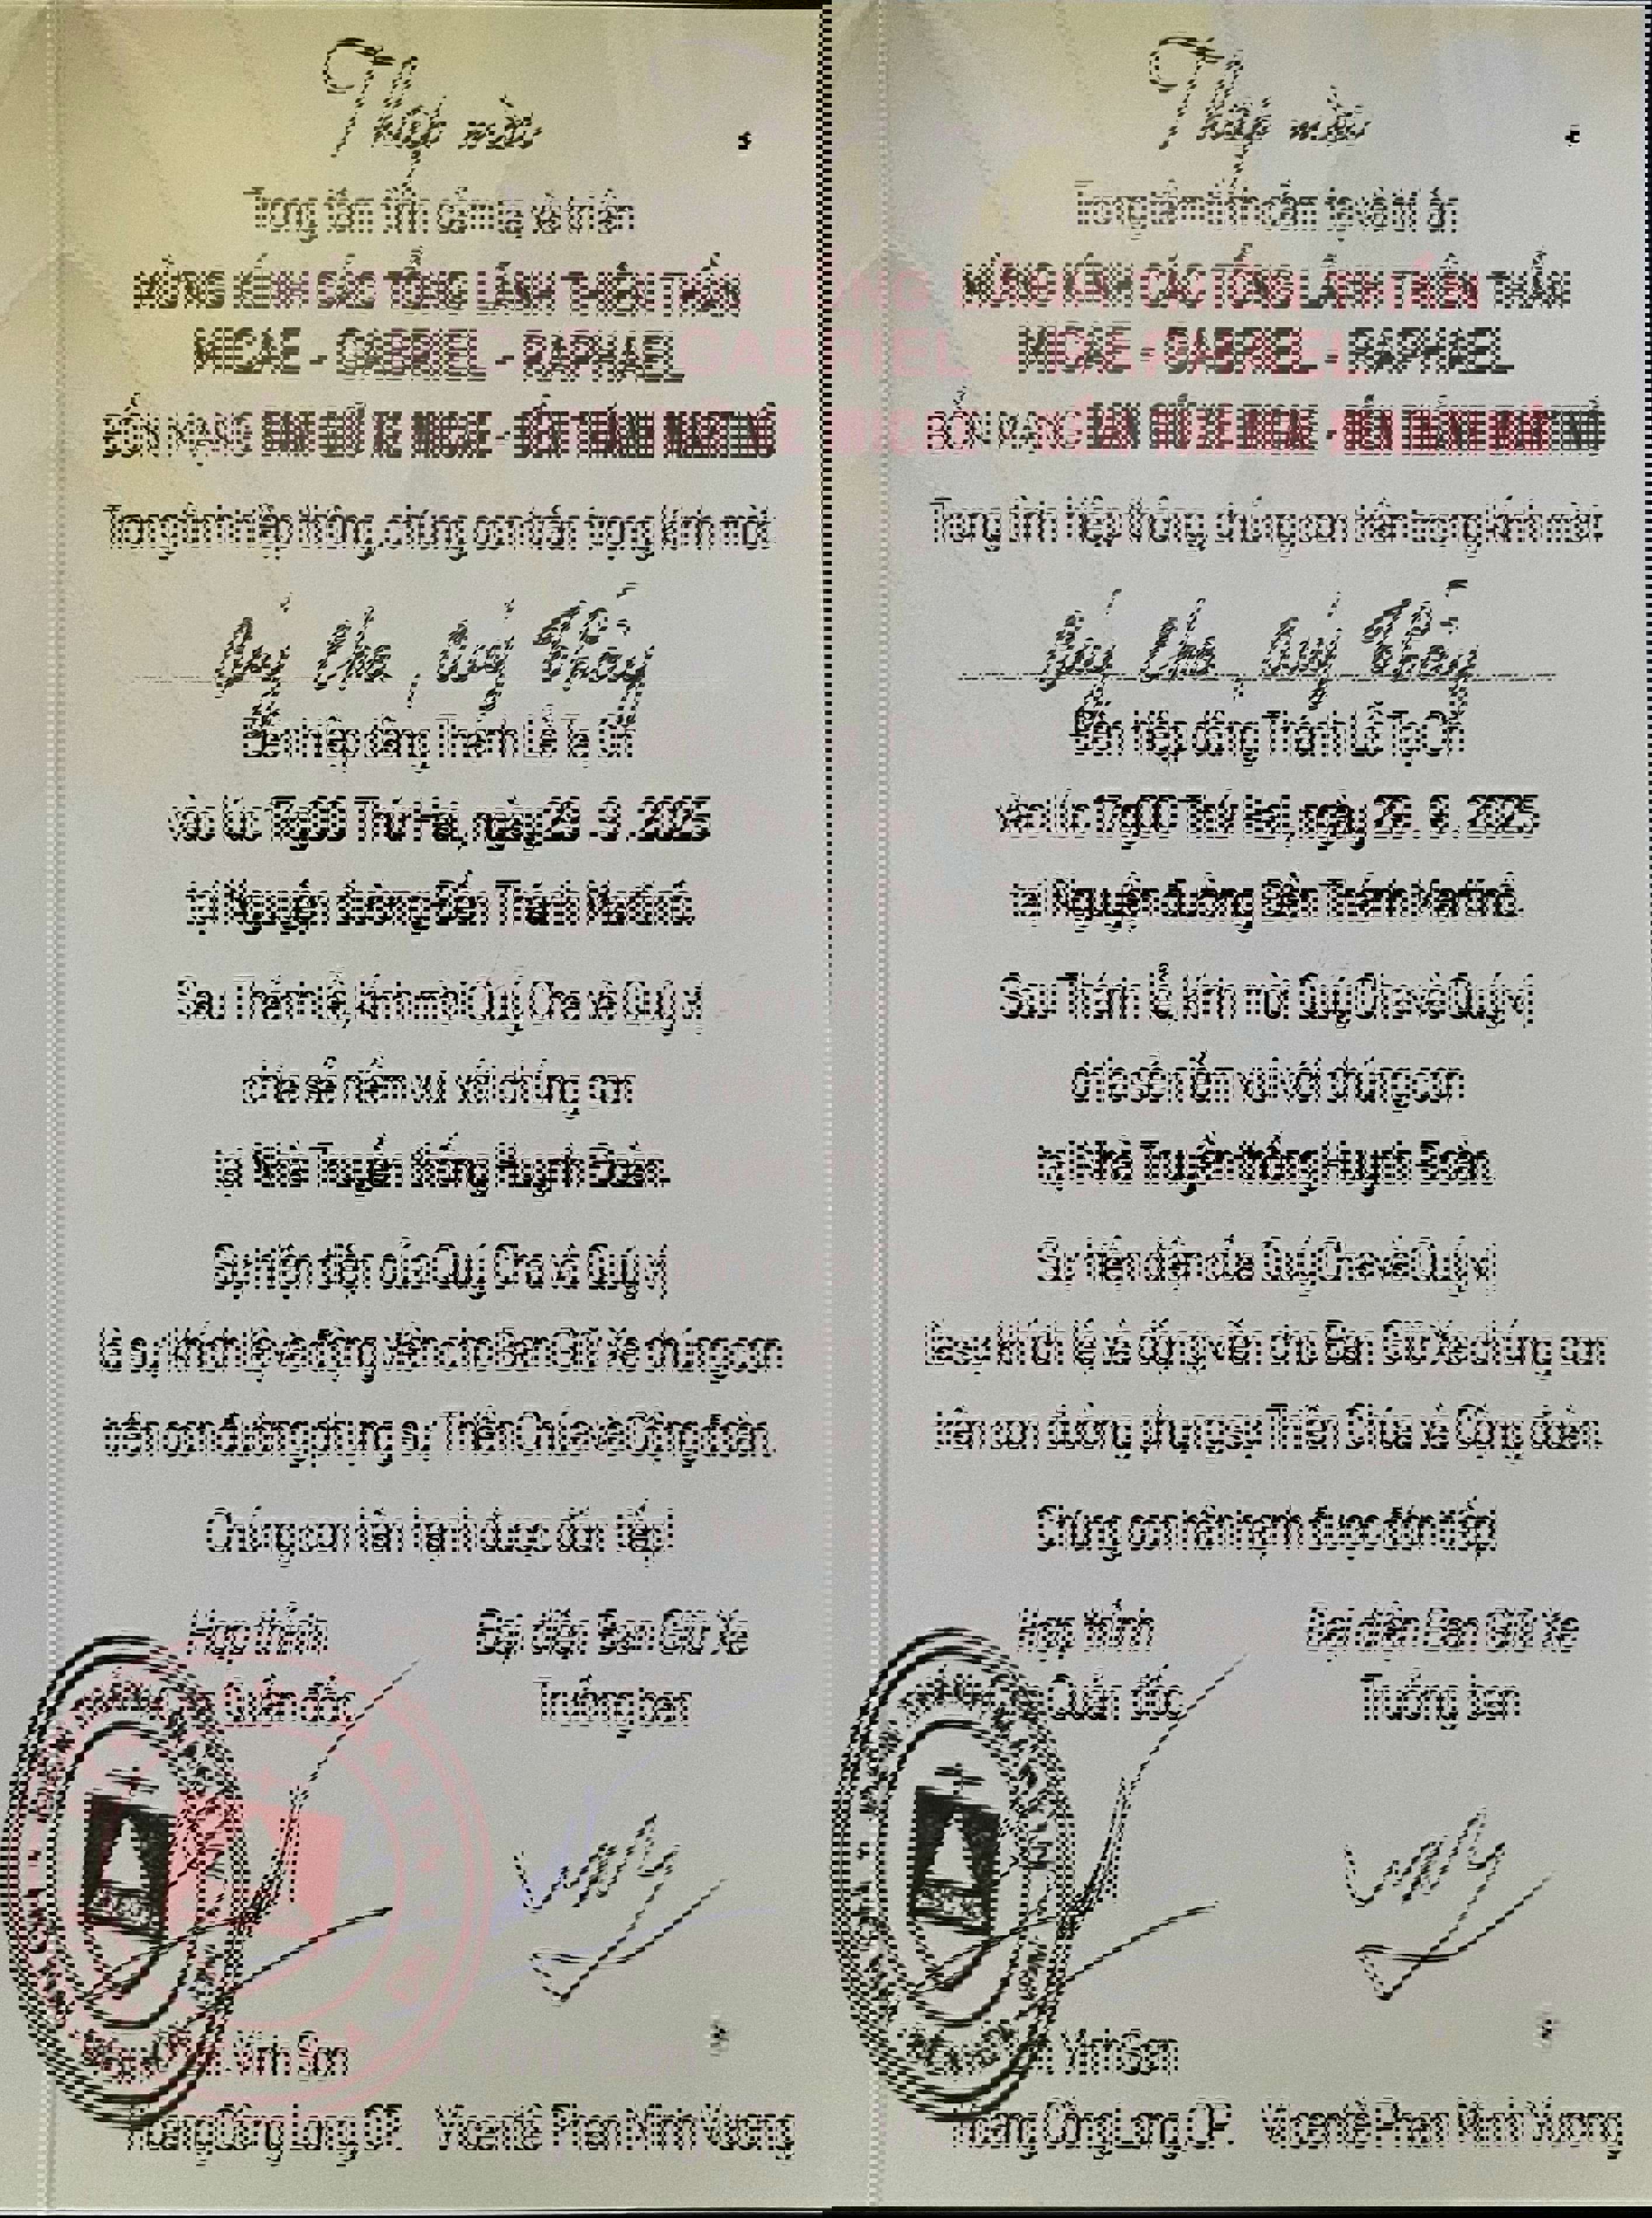 Thiệp mời
Trong tâm tình cảm tạ và tri ân
MỪNG KÍNH CÁC TỔNG LÃNH THIÊN THẦN
MICAE - GABRIEL - RAPHAEL
BỔN MẠNG BAN GIỮ XE MICAE - ĐỀN THÁNH MARTINÔ
Trong tình hiệp thông, chúng con trân trọng kính mời:
Quý Cha, Quý Thầy
Đến hiệp dâng Thánh Lễ Tạ Ơn
vào lúc 17g00 Thứ Hai, ngày 29 . 9 . 2025
tại Nguyện đường Đền Thánh Martinô.
Sau Thánh Lễ, kính mời Quý Cha và Quý vị
chia sẻ niềm vui với chúng con
tại Nhà Truyền thống Huynh Đoàn.
Sự hiện diện của Quý Cha và Quý vị
là sự khích lệ và động viên cho Ban Giữ Xe chúng con
trên con đường phụng sự Thiên Chúa và Cộng đoàn.
Chúng con hân hạnh được đón tiếp!
Hợp thỉnh
Quản đốc
Đại diện Ban Giữ Xe
Trưởng ban
Vinh Sơn
Hoàng Công Long, OP.
Vicentê Phan Minh Vương
Thiệp mời
Trong tâm tình cảm tạ và tri ân
MỪNG KÍNH CÁC TỔNG LÃNH THIÊN THẦN
MICAE - GABRIEL - RAPHAEL
BỔN MẠNG BAN GIỮ XE MICAE - ĐỀN THÁNH MARTINÔ
Trong tình hiệp thông, chúng con trân trọng kính mời:
Quý Cha, Quý Thầy
Đến hiệp dâng Thánh Lễ Tạ Ơn
vào lúc 17g00 Thứ Hai, ngày 29 . 9 . 2025
tại Nguyện đường Đền Thánh Martinô.
Sau Thánh Lễ, kính mời Quý Cha và Quý vị
chia sẻ niềm vui với chúng con
tại Nhà Truyền thống Huynh Đoàn.
Sự hiện diện của Quý Cha và Quý vị
là sự khích lệ và động viên cho Ban Giữ Xe chúng con
trên con đường phụng sự Thiên Chúa và Cộng đoàn.
Chúng con hân hạnh được đón tiếp!
Hợp thỉnh
Quản đốc
Đại diện Ban Giữ Xe
Trưởng ban
Vinh Sơn
Hoàng Công Long, OP.
Vicentê Phan Minh Vương